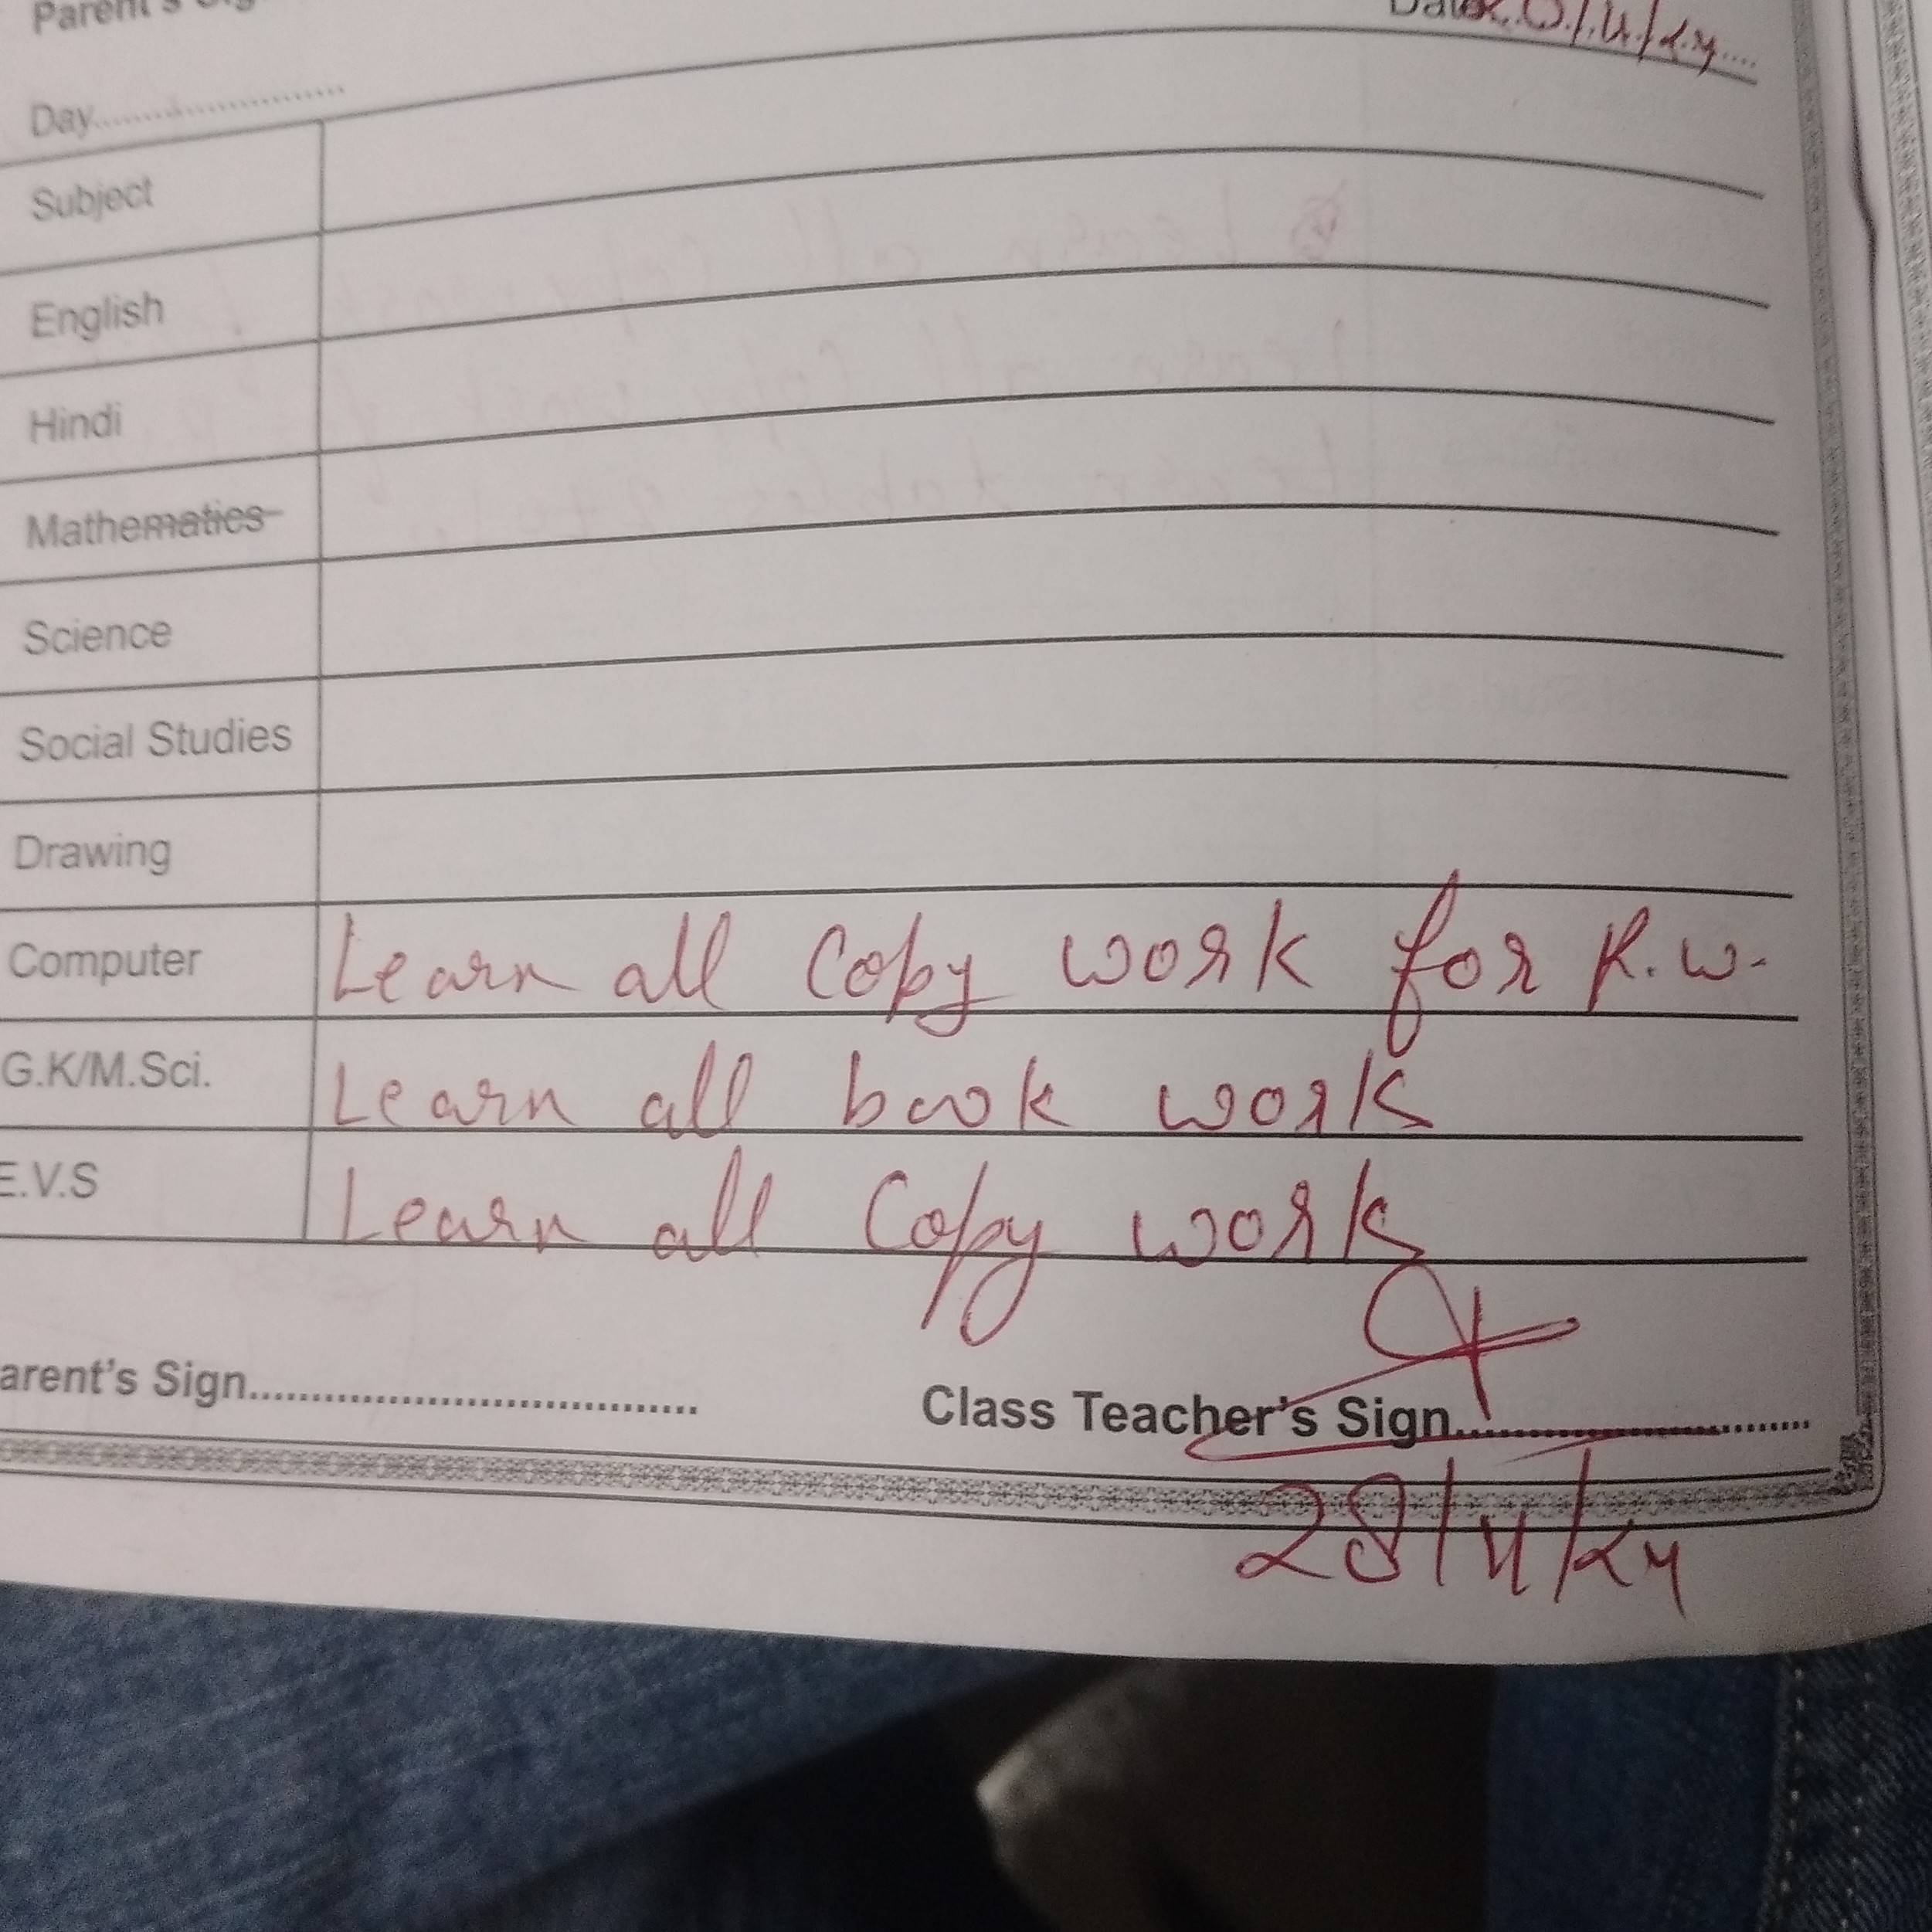 Parent's
Day....................
Subject
English
Hindi
Mathematics
Science
Social Studies
Drawing
Computer Learn all Copy work for R.W.
G.K/M.Sci. Learn all book work
E.V.S Learn all Copy work
arent's Sign.................................... Class Teacher's Sign............................
28/4/24